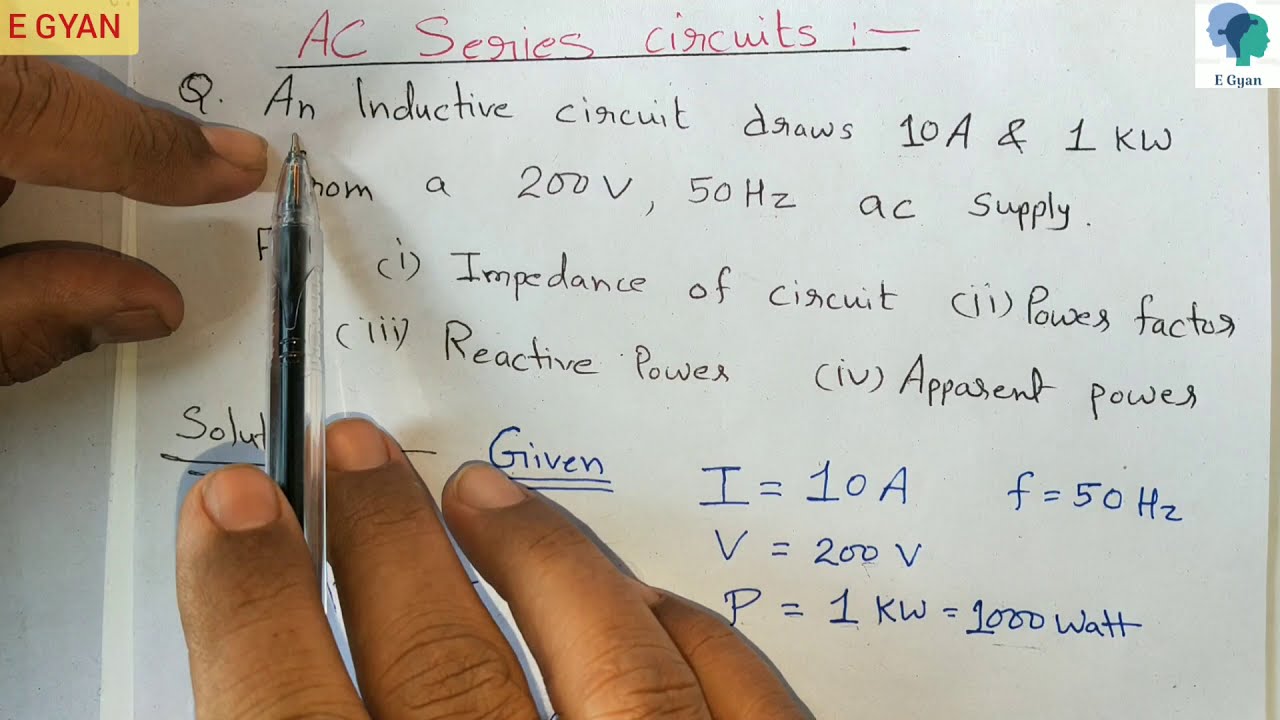 E GYAN
AC Series circuits :-
E Gyan
Q. An Inductive circuit draws 10A & 1 KW
a 200V, 50Hz ac supply.
(i) Impedance of circuit (ii) Power factor
(iii) Reactive Power (iv) Apparent power
Given
I = 10A f = 50Hz
V = 200 V
P = 1 KW = 1000 Watt